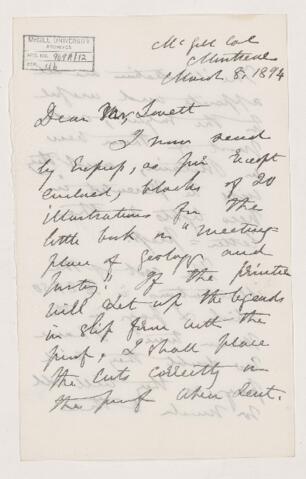 McGILL UNIVERSITY
ARCHIVES
ACC. NO.
REF.
McGill Col
Montreal
March 8, 1894
Dear Mr Lovett
I now send
by Express, as per
enclosed, blocks of 20
illustrations for the
little book on "meeting-
place of Geology and
History." If the printer
will set up the legends
in slip form with the
proof, I shall place
the cuts correctly in
the proof when sent.